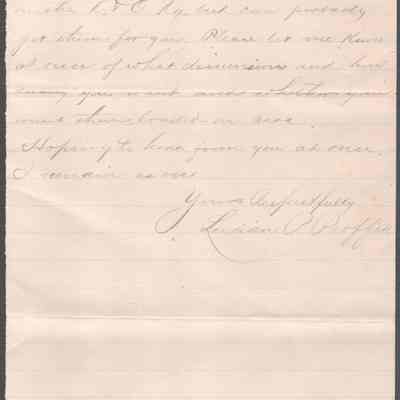 but can probably
get them for you. Please let me know
at once of what dimensions and how
many you want and whether you
want them loaded on cars.
Hoping to hear from you at once.
I remain as ever
Yours Respectfully
Lucian P.